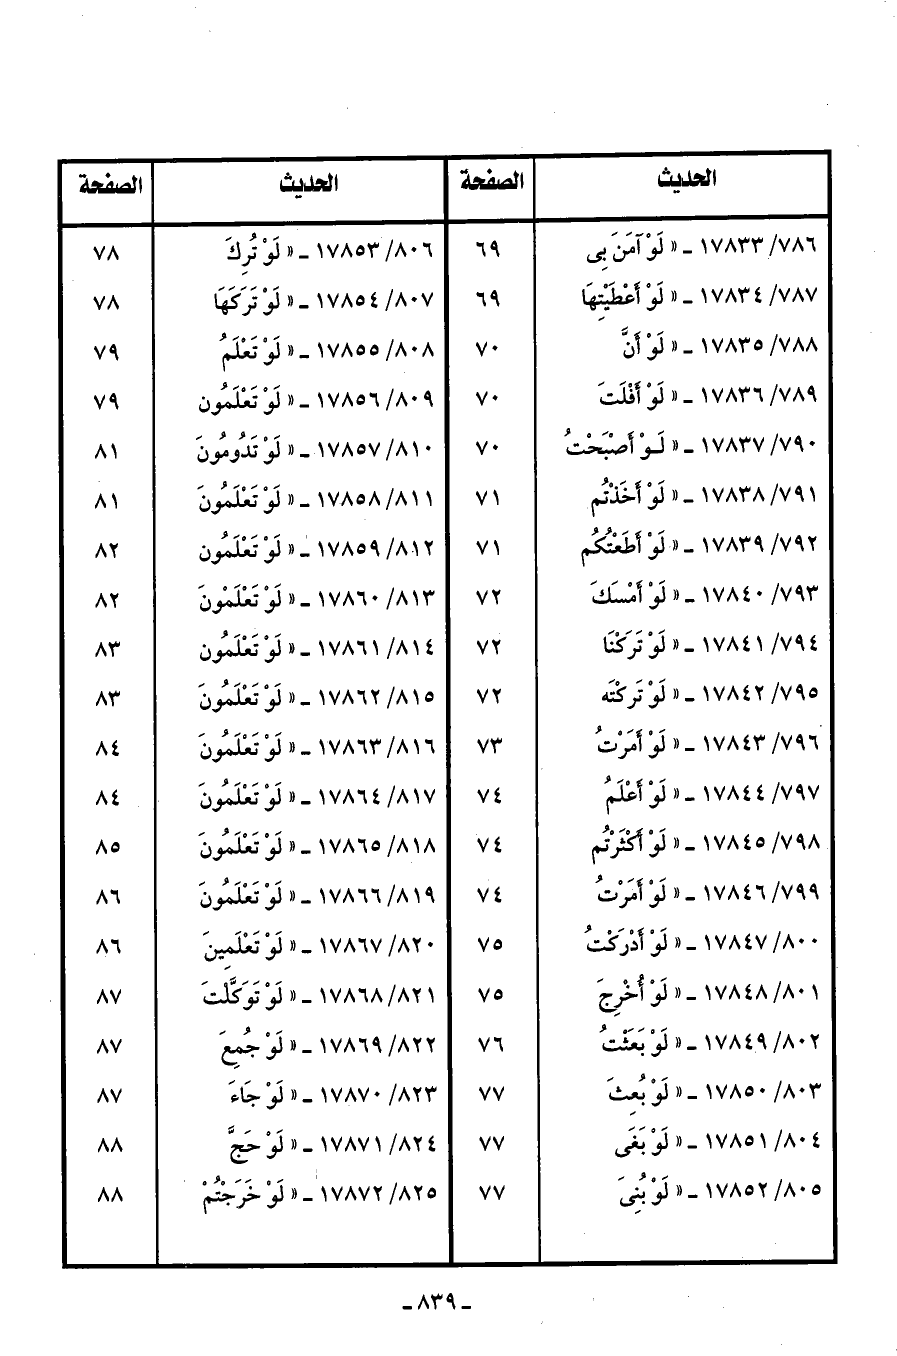 الحديث الصفحة الحديث الصفحة
٧٨٦/ ١٧٨٣٣ ـ « لَوْ آمَنَ بِى ٦٩ ٨٠٦/ ١٧٨٥٣ ـ « لَوْ تُرِكَ ٧٨
٧٨٧/ ١٧٨٣٤ ـ « لَوْ أَعْطَيْتِهَا ٦٩ ٨٠٧/ ١٧٨٥٤ ـ « لَوْ تَرَكَهَا ٧٨
٧٨٨/ ١٧٨٣٥ ـ « لَوْ أَنَّ ٧٠ ٨٠٨/ ١٧٨٥٥ ـ « لَوْ تَعْلَمُ ٧٩
٧٨٩/ ١٧٨٣٦ ـ « لَوْ أَفْلَتَ ٧٠ ٨٠٩/ ١٧٨٥٦ ـ « لَوْ تَعْلَمُون ٧٩
٧٩٠/ ١٧٨٣٧ ـ « لَـوْ أَصْبَحْتُ ٧٠ ٨١٠/ ١٧٨٥٧ ـ « لَوْ تَدُومُونَ ٨١
٧٩١/ ١٧٨٣٨ ـ « لَوْ أَخَذْتُم ٧١ ٨١١/ ١٧٨٥٨ ـ « لَوْ تَعْلَمُونَ ٨١
٧٩٢/ ١٧٨٣٩ ـ « لَوْ أَطَعْتُكُم ٧١ ٨١٢/ ١٧٨٥٩ ـ « لَوْ تَعْلَمُون ٨٢
٧٩٣/ ١٧٨٤٠ ـ « لَوْ أَمْسَكَ ٧٢ ٨١٣/ ١٧٨٦٠ ـ « لَوْ تَعْلَمْونَ ٨٢
٧٩٤/ ١٧٨٤١ ـ « لَوْ تَرَكْنَا ٧٢ ٨١٤/ ١٧٨٦١ ـ « لَوْ تَعْلَمُون ٨٣
٧٩٥/ ١٧٨٤٢ ـ « لَوْ تَركتْه ٧٢ ٨١٥/ ١٧٨٦٢ ـ « لَوْ تَعْلَمُونَ ٨٣
٧٩٦/ ١٧٨٤٣ ـ « لَوْ أَمَرْتُ ٧٣ ٨١٦/ ١٧٨٦٣ ـ « لَوْ تَعْلَمُونَ ٨٤
٧٩٧/ ١٧٨٤٤ ـ « لَوْ أَعْلَمُ ٧٤ ٨١٧/ ١٧٨٦٤ ـ « لَوْ تَعْلَمُونَ ٨٤
٧٩٨/ ١٧٨٤٥ ـ « لَوْ أَكْثَرْتُم ٧٤ ٨١٨/ ١٧٨٦٥ ـ « لَوْ تَعْلَمُونَ ٨٥
٧٩٩/ ١٧٨٤٦ ـ « لَوْ أَمَرْتُ ٧٤ ٨١٩/ ١٧٨٦٦ ـ « لَوْ تَعْلَمُونَ ٨٦
٨٠٠/ ١٧٨٤٧ ـ « لَوْ أَدْرَكْتُ ٧٥ ٨٢٠/ ١٧٨٦٧ ـ « لَوْ تَعْلَمِينَ ٨٦
٨٠١/ ١٧٨٤٨ ـ « لَوْ أُخْرِجَ ٧٥ ٨٢١/ ١٧٨٦٨ ـ « لَوْ تَوَكَّلْتَ ٨٧
٨٠٢/ ١٧٨٤٩ ـ « لَوْ بَعَثْتُ ٧٦ ٨٢٢/ ١٧٨٦٩ ـ « لَوْ جُمِعَ ٨٧
٨٠٣/ ١٧٨٥٠ ـ « لَوْ بُعِثَ ٧٧ ٨٢٣/ ١٧٨٧٠ ـ « لَوْ جَاءَ ٨٧
٨٠٤/ ١٧٨٥١ ـ « لَوْ بَغَى ٧٧ ٨٢٤/ ١٧٨٧١ ـ « لَوْ حَجَّ ٨٨
٨٠٥/ ١٧٨٥٢ ـ « لَوْ بُنِىَ ٧٧ ٨٢٥/ ١٧٨٧٢ ـ « لَوْ خَرَجْتُمْ ٨٨
ـ ٨٣٩ ـ